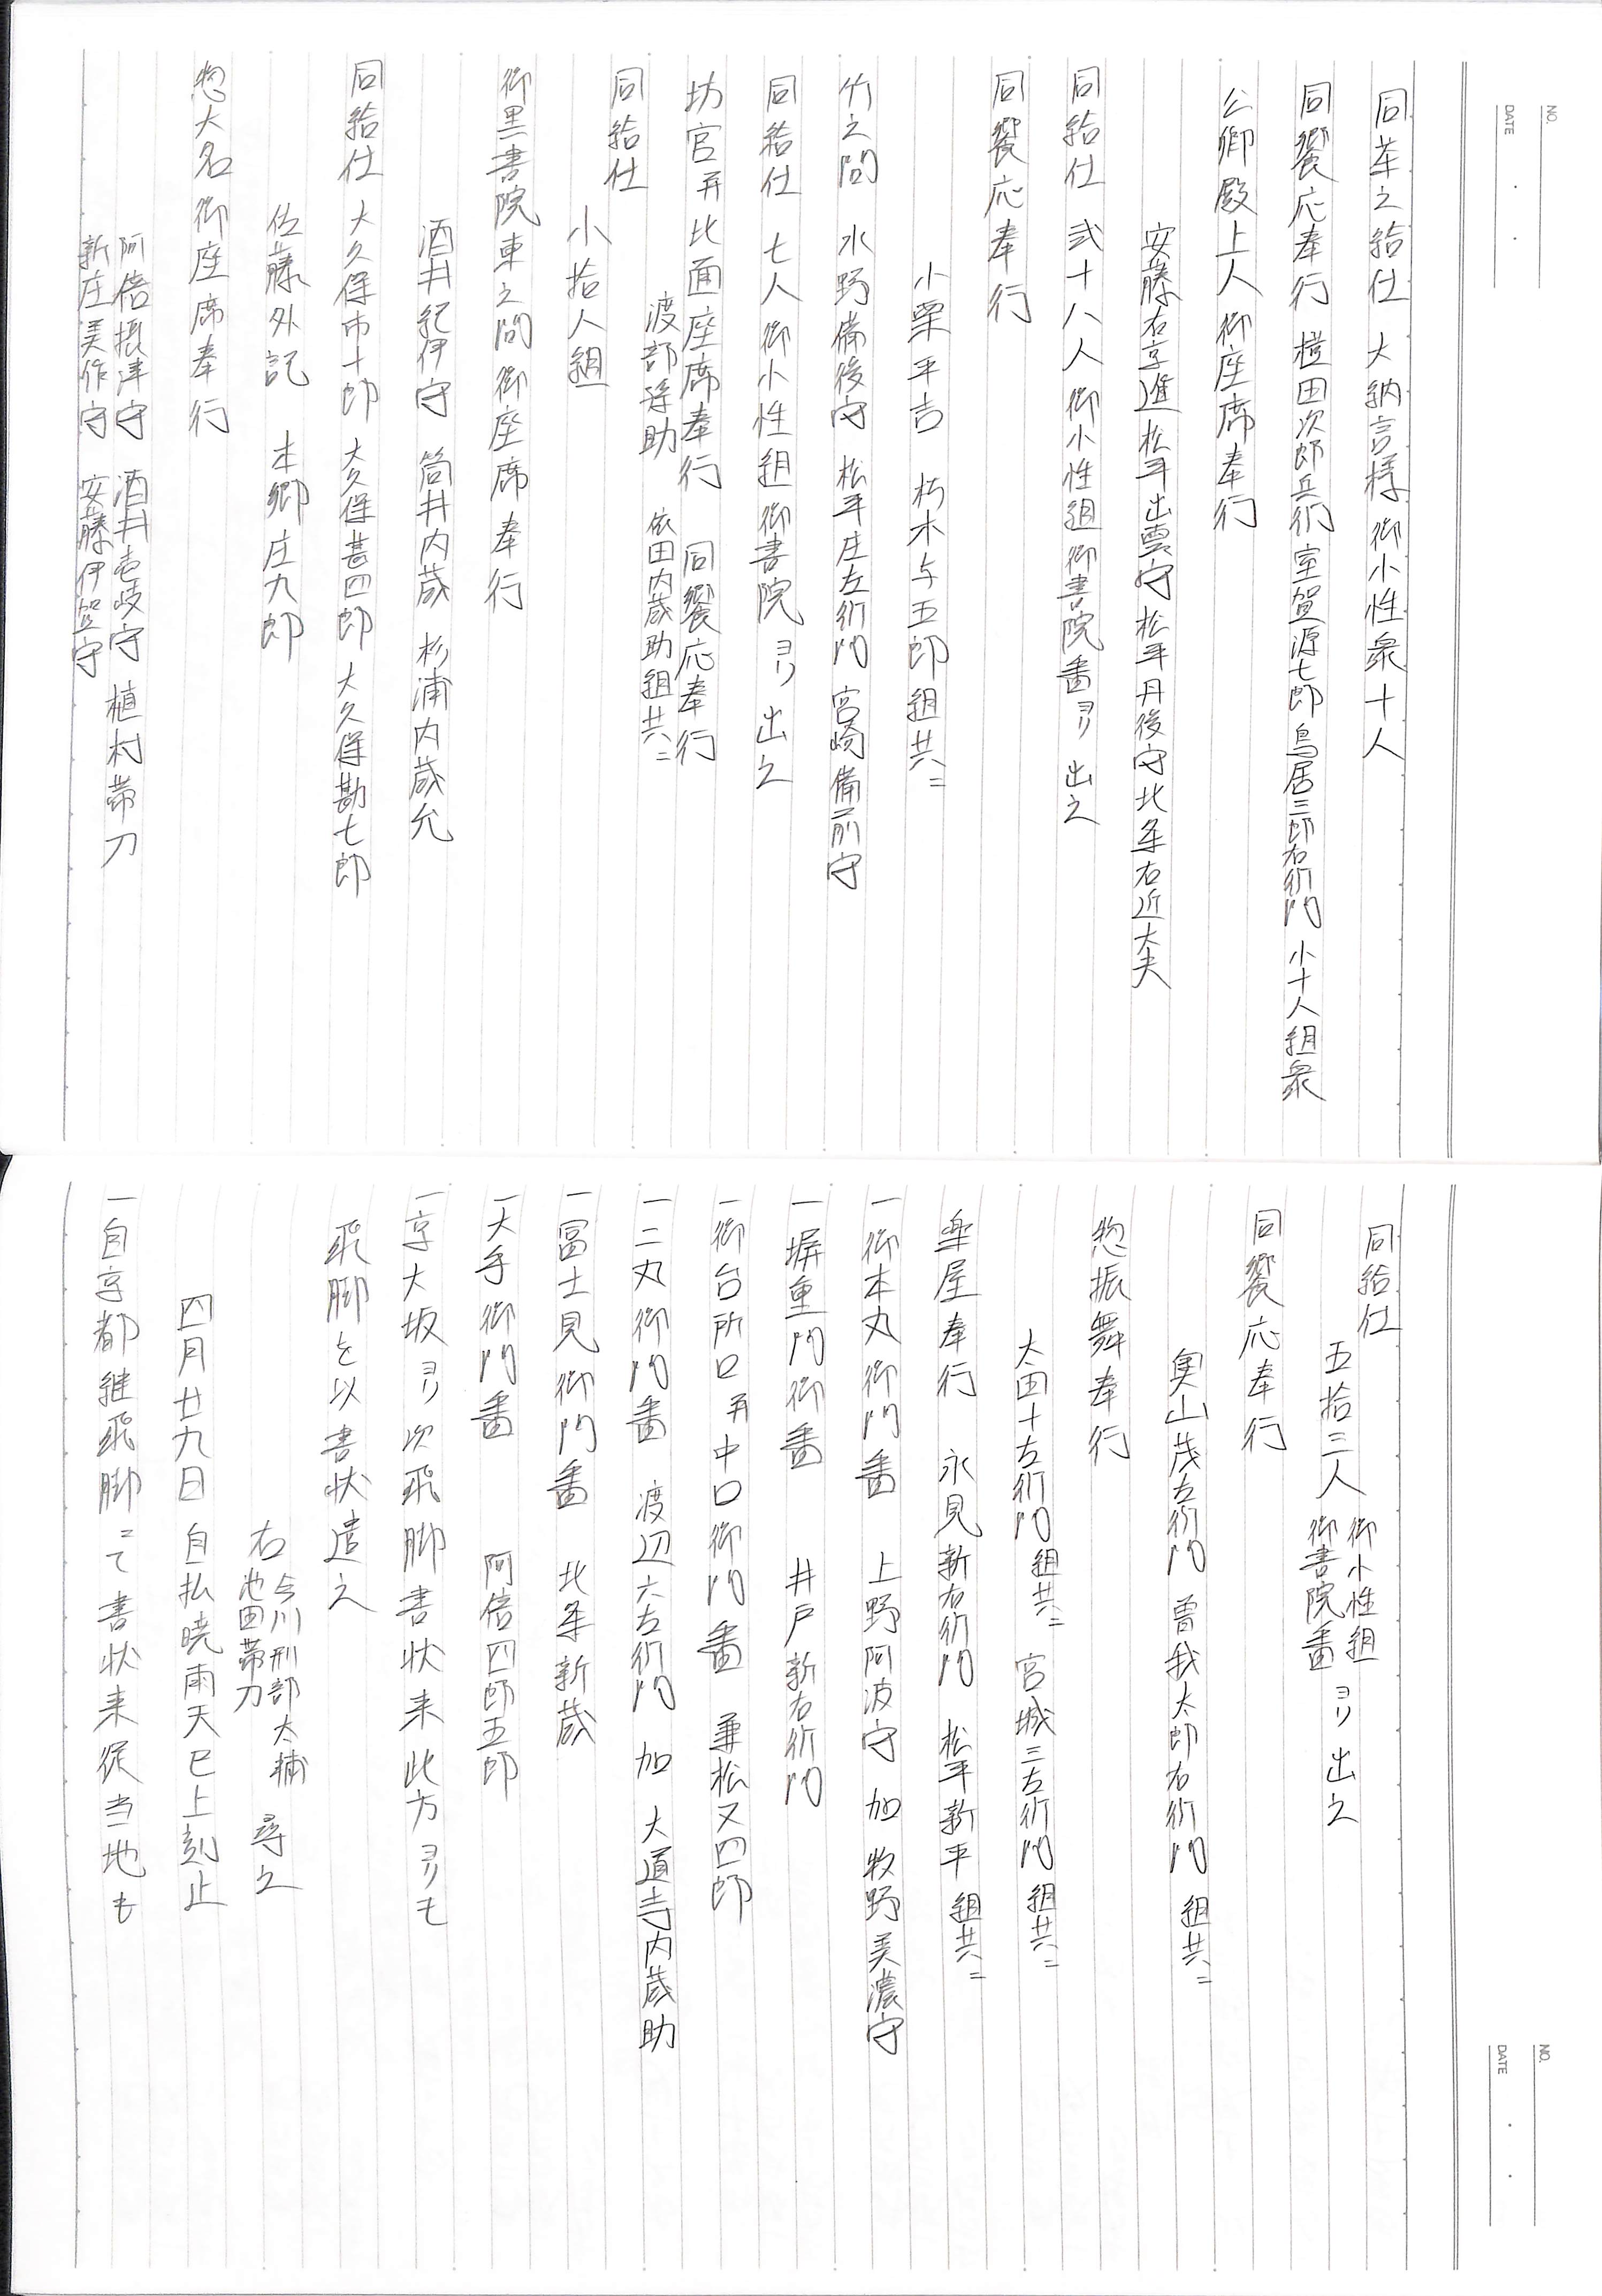 NO.
DATE
同茶之給仕 大納言様 御小性衆十人
同饗応奉行 横田次郎兵衛 室賀源七郎 鳥居三郎右衛門 小十人組衆
公卿殿上人御座席奉行
安藤右京進 松平出雲守 松平丹後守 北条右近大夫
同給仕 弐十八人 御小性組 御書院番ヨリ出之
同饗応奉行
小栗平吉 朽木与五郎 組共ニ
竹之間 水野備後守 松平庄左衛門 宮崎備前守
同給仕 七人 御小性組 御書院ヨリ出之
坊官并北面座席奉行 同饗応奉行
渡部孫助 依田内蔵助組共ニ
同給仕
小拾人組
御黒書院東之間御座席奉行
酒井紀伊守 筒井内蔵 杉浦内蔵允
同給仕 大久保市十郎 大久保甚四郎 大久保勘七郎
佐藤外記 本郷庄九郎
惣大名御座席奉行
阿倍摂津守 酒井壱岐守 植村帯刀
新庄美作守 安藤伊賀守
NO.
DATE
同給仕
五拾三人 御小性組 御書院番 ヨリ出之
同饗応奉行
奥山茂左衛門 曽我太郎右衛門 組共ニ
惣振舞奉行
太田十左衛門 組共ニ 宮城三左衛門 組共ニ
楽屋奉行 永見新右衛門 松平新平 組共ニ
一御本丸御門番 上野阿波守 加 牧野美濃守
一塀重門御番 井戸新右衛門
一御台所口并中口御門番 兼松又四郎
一二丸御門番 渡辺六左衛門 加 大道寺内蔵助
一冨士見御門番 北条新蔵
一大手御門番 阿倍四郎五郎
一京大坂ヨリ次飛脚書状来此方ヨリも
飛脚を以書状遣之
右 今川刑部大輔 池田帯刀 尋之
四月廿九日 自払暁雨天巳上刻止
一自京都継飛脚ニて書状来従当地も